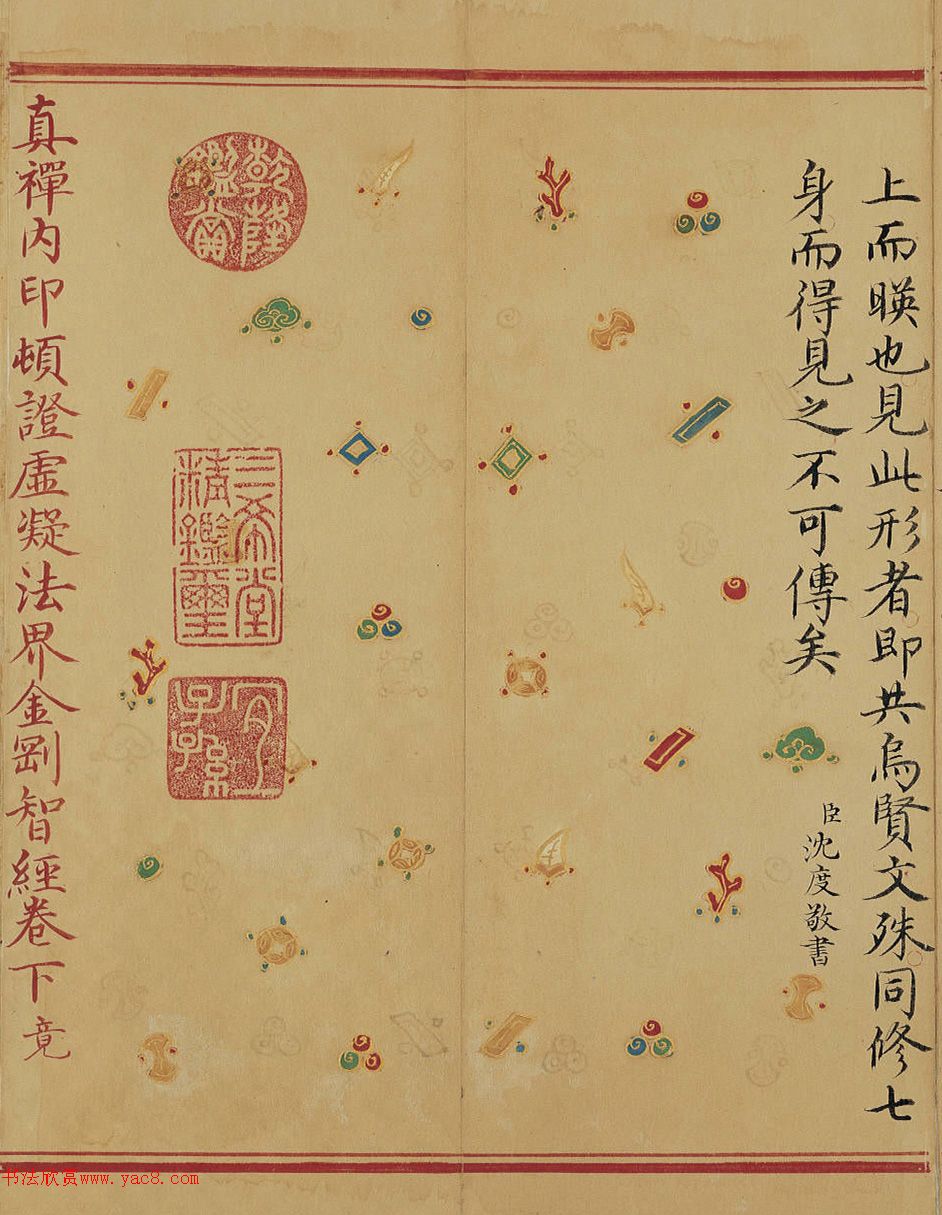 上而暎也見此形者即共烏賢文殊同修七
身而得見之不可傳矣
臣沈度敬書
乾隆鑑賞
三希堂精鑑璽
宜子孫
真禪内印頓證虛凝法界金剛智經卷下竟
书法欣赏www.yac8.com